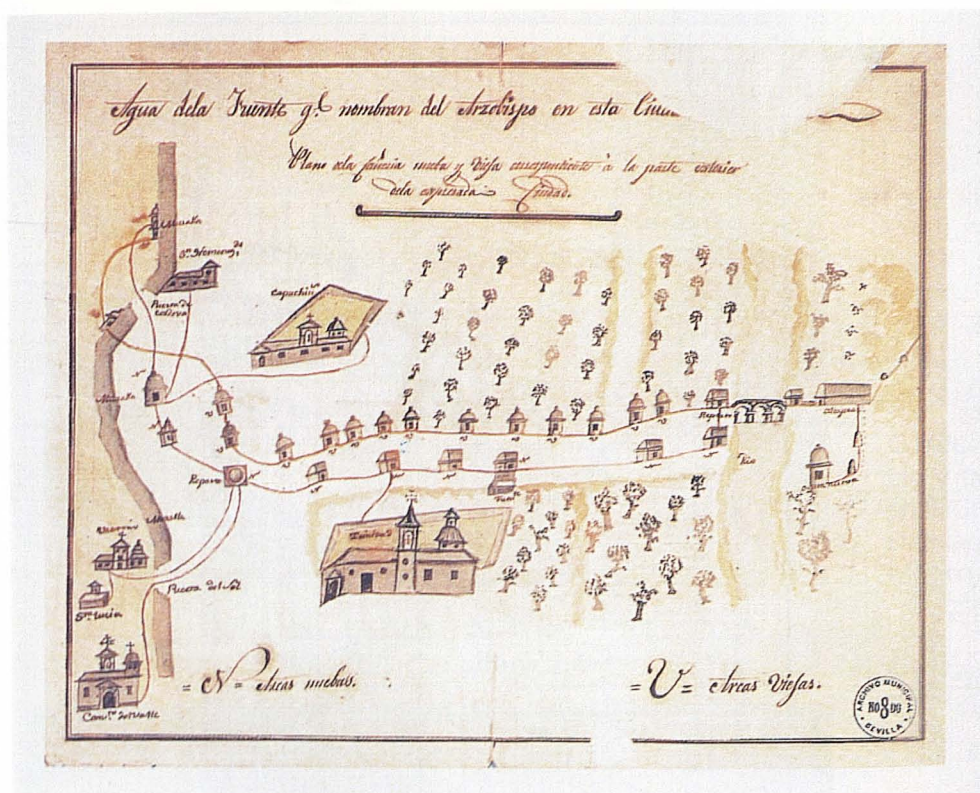 Agua dela Fuente q.e nombran del Arzobispo en esta Ciud
Plano dela fañeria nueba y Vieja correspondiente à la parte exterior
dela expresada Ciudad.
Muralla
Puerta de
Capuchin.s
Muralla
Reparo
Reparo
Rio
Fuente
Trinidad
Muralla
Puerta del Sol
S.ta Lucia
Conv.to del Valle
= N = Arcas nuebas.
= V = Arcas Viejas.
ARCHIVO MUNICIPAL
SEVILLA